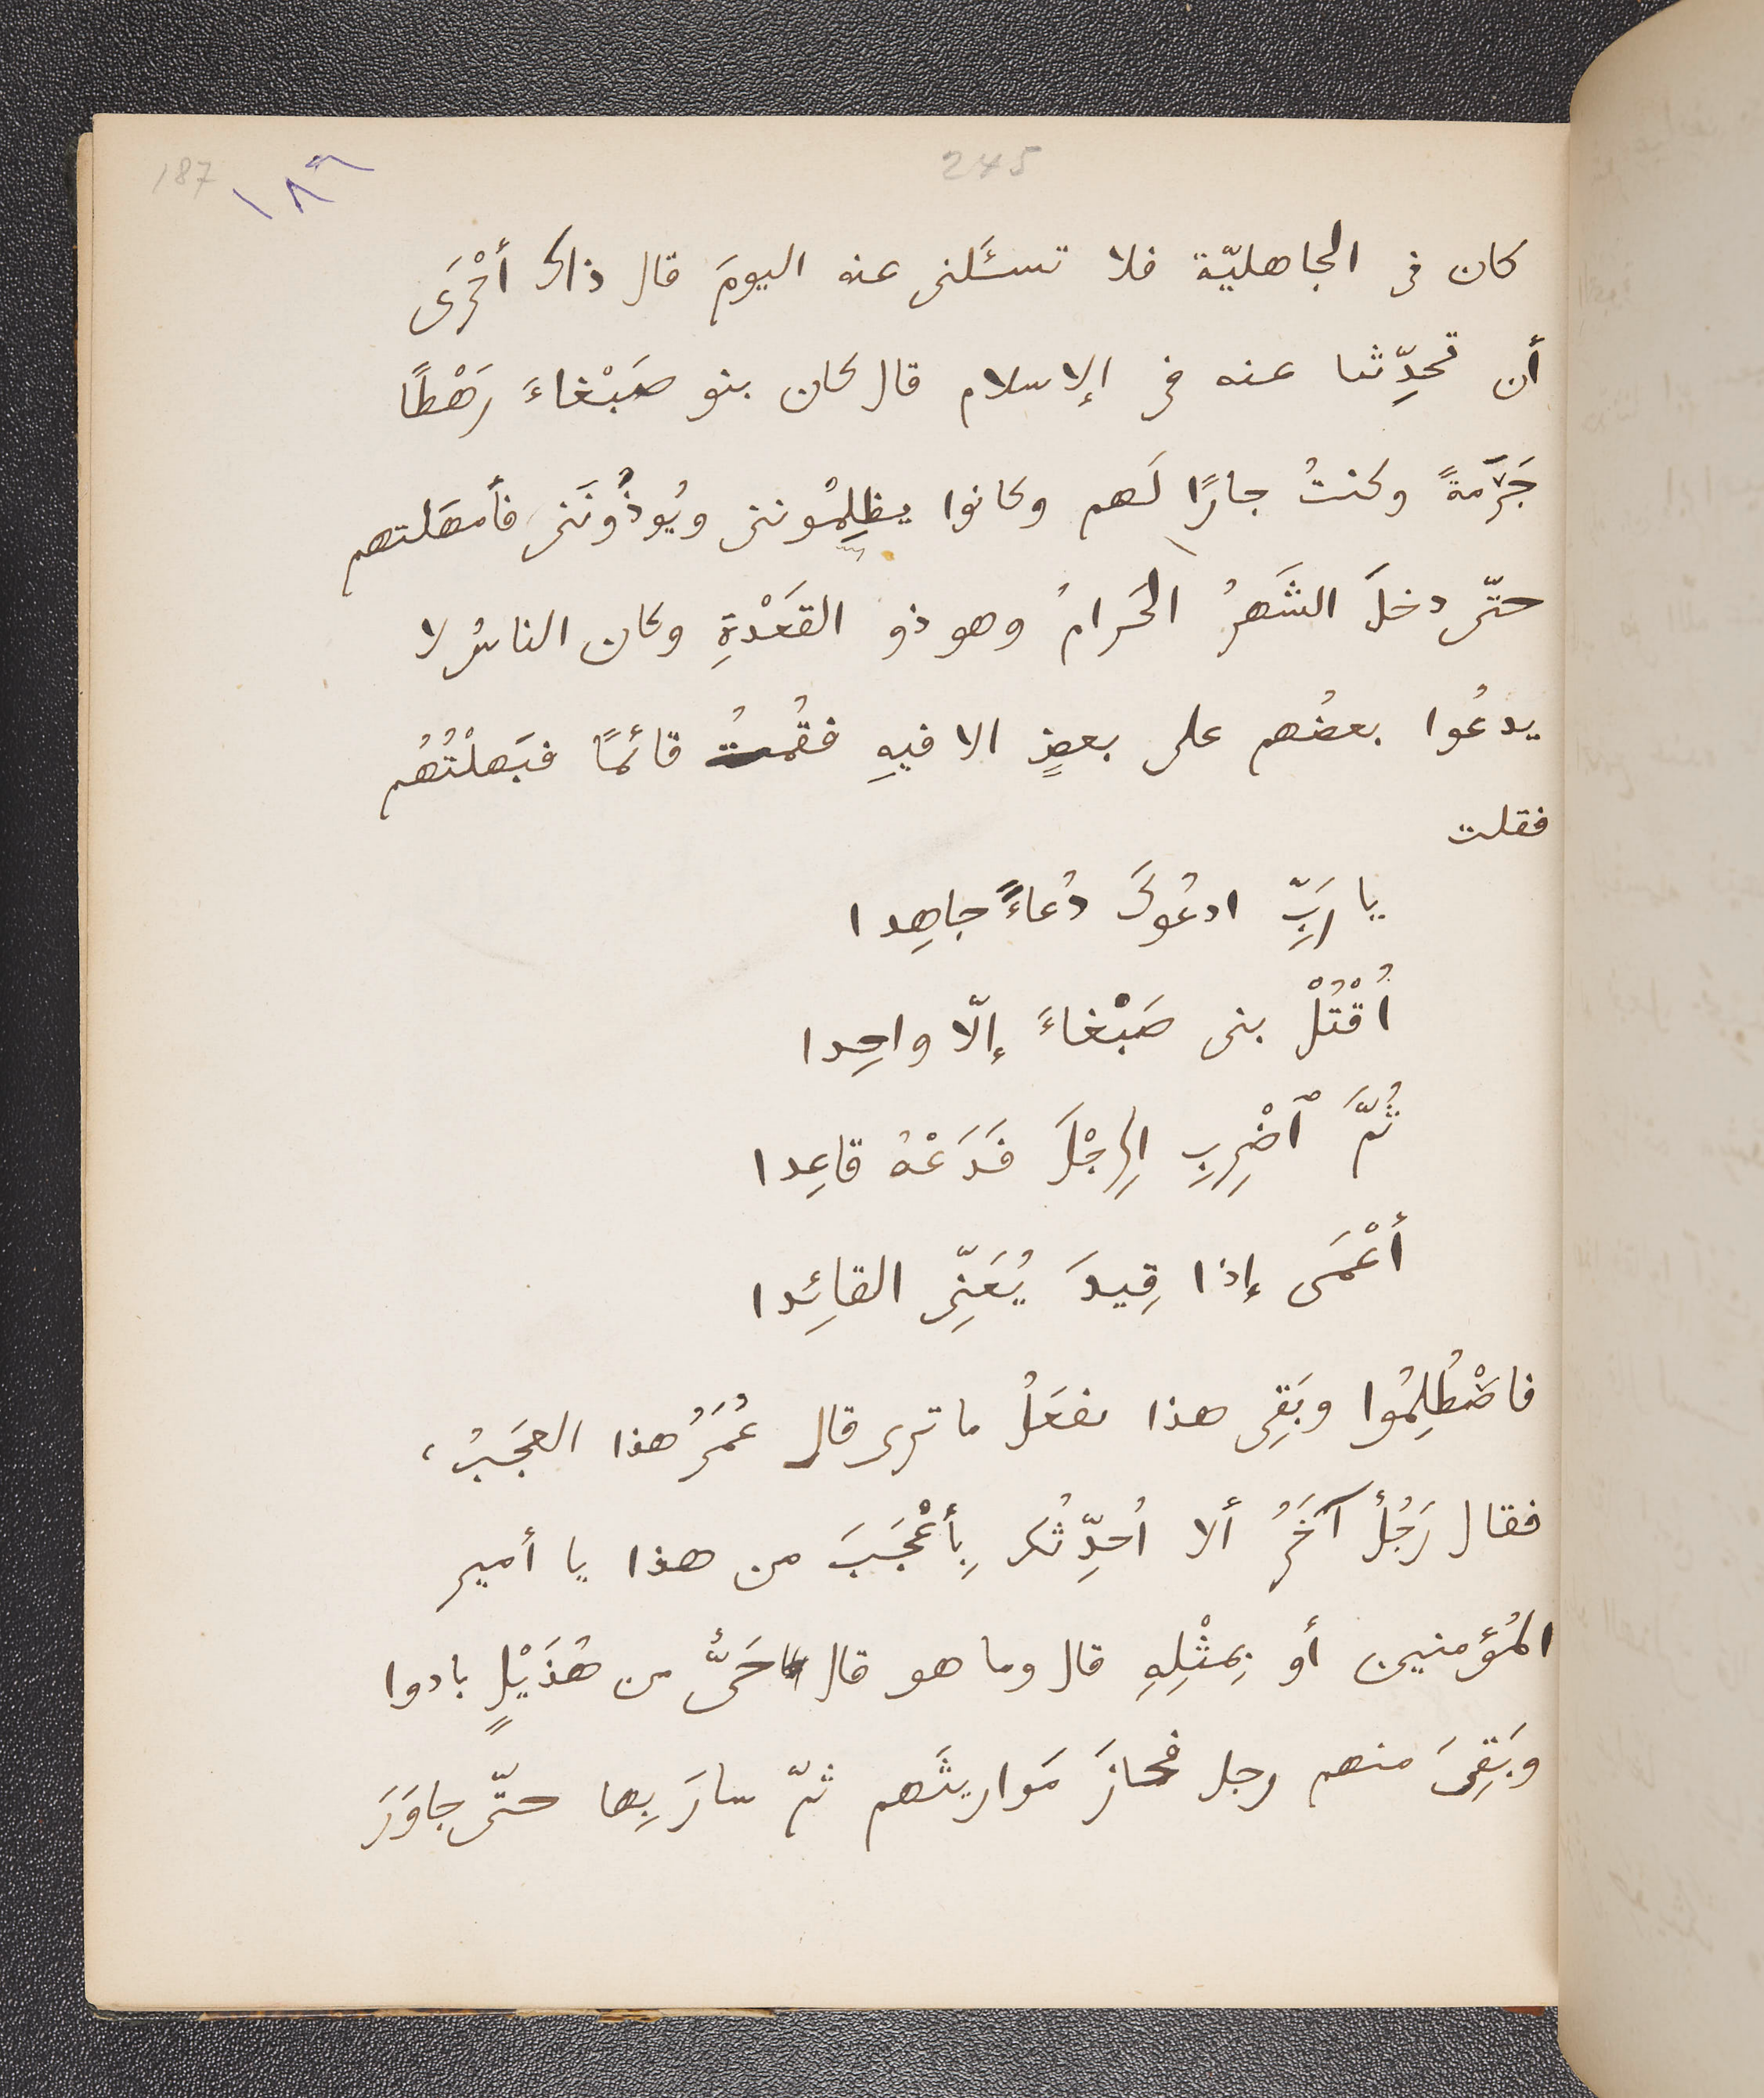 187
١٨٦
245
كان فى الجاهليّة فلا تسئَلنى عنه اليومَ قال ذاك أحْرَى
أن تحدِّثنا عنه فى الإسلام قال كان بنو صَبْغاءَ رَهْطًا
وكنتُ جارًا لَهم وكانوا يظلِمُوننى ويُوذُونَنى فأمهَلتهم
حتّى دخلَ الشَهرُ الحَرامُ وهو ذو القَعْدةِ وكان الناسُ لا
يدعُوا بعضُهم على بعضٍ الا فيهِ فقُمتُ قائمًا فبَهلْتُهُم
فقلت
يا رَبِّ ادعُوكَ دُعاءً جاهِدا
اُقْتُلْ بنى صَبْغاءَ إلّا واحِدا
ثُمَّ ٱضْرِبِ الرِجْلَ فَدَعْهُ قاعِدا
أعْمَى إذا قِيدَ يُعَنِّى القائِدا
فاصْطُلِمُوا وبَقِى هذا ما ترى قال عُمَرُ هذا العجَبُ،
فقال رَجُلٌ آخَرُ ألا اُحدِّثُكَ بِأعْجَبَ من هذا يا أمير
المُؤمنين أو بِمثْلِهِ قال وما هو قال حَىٌّ من هُذَيْلٍ بادوا
وبَقِىَ منهم رجل فحازَ مَواريثَهم ثمّ سارَ بِها حتّى جاوَرَ